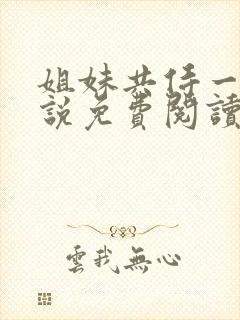 姐妹共侍一
說免費閱讀
雲我無心